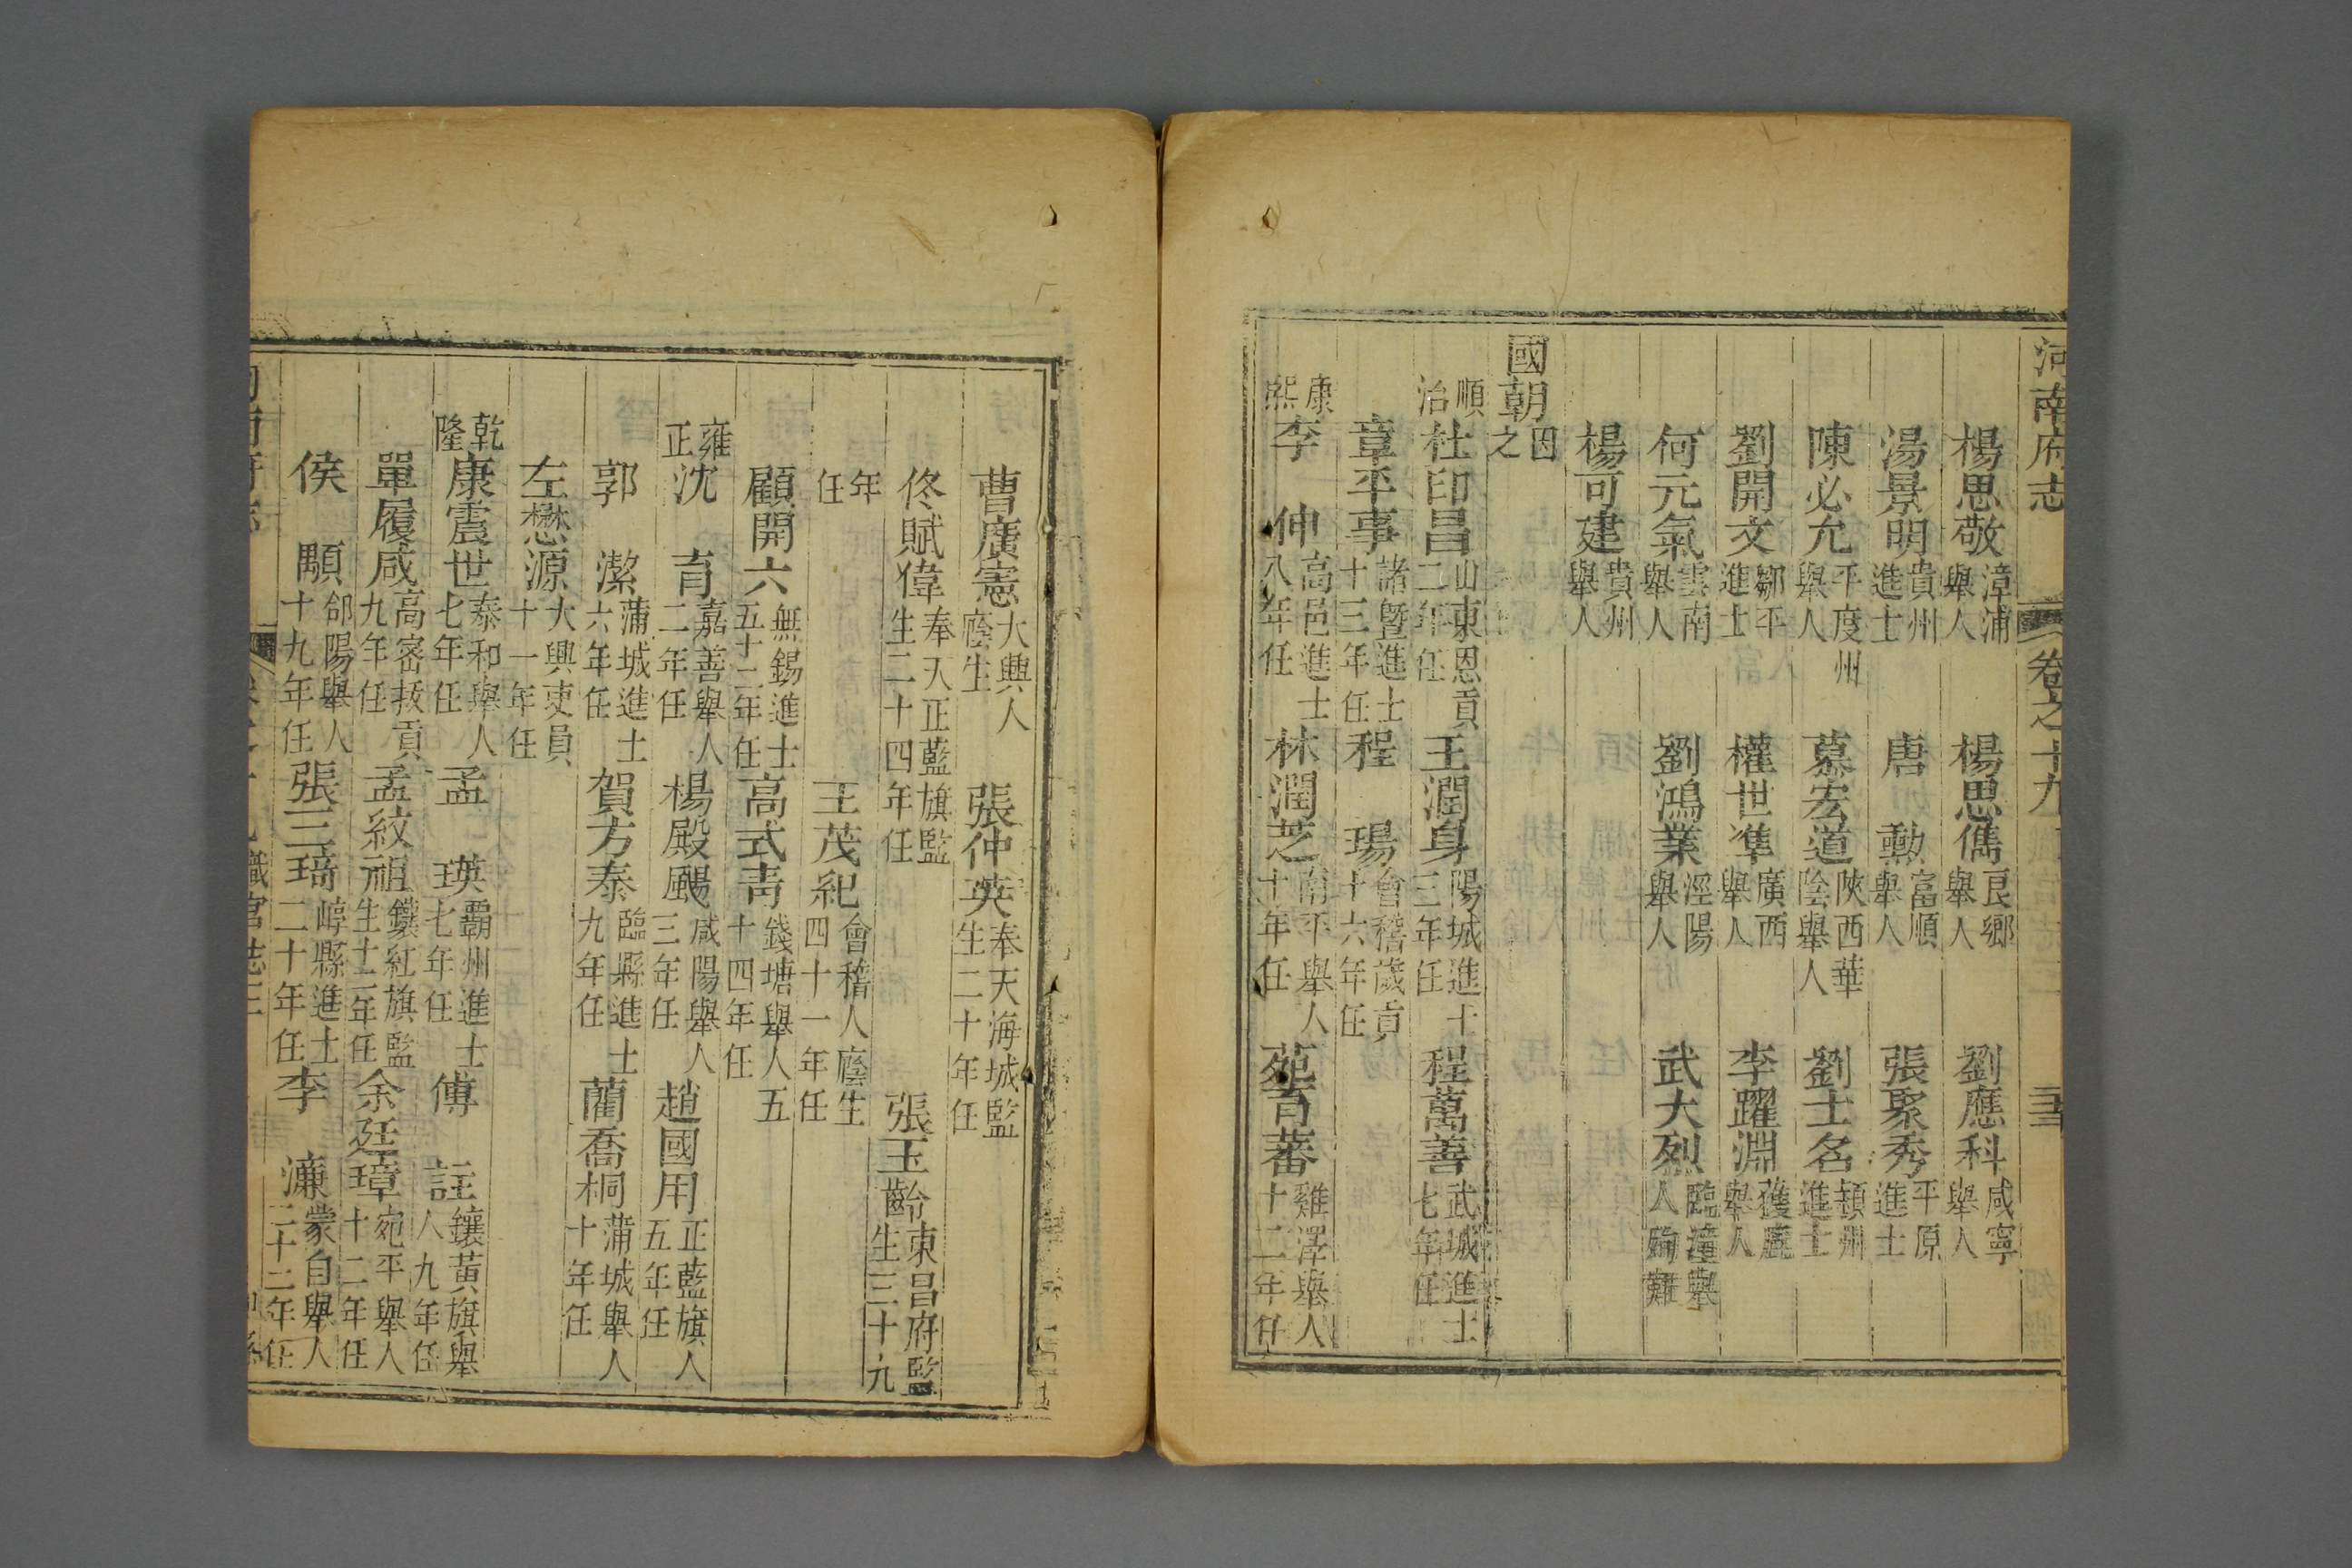 河南府志 卷之十九
楊思敬 漳浦舉人 楊思儁 艮鄉舉人 劉應科 咸寧舉人
湯景明 貴州進士 唐勳 富順舉人 張聚秀 平原進士
陳必允 平度州舉人 慕宏道 陝西華陰舉人 劉士名 潁州進士
劉開文 鄒平進士 權世準 廣西舉人 李躍淵 獲鹿舉人
何元氣 雲南舉人 劉鴻業 涇陽舉人 武大烈 臨潼舉人殉難
楊可建 貴州舉人
國朝 因之
順治 杜印昌 山東恩貢二年任 王潤身 陽城進士三年任 程萬善 武城進士七年任
章平事 諸暨進士十三年任 程瑒 會稽歲貢十六年任
康熙 李伸 高邑進士八年任 林潤芝 南平舉人十年任 苑蕃 雞澤舉人十二年任
曹廣憲 大興人廕生 張仲英 奉天海城監生二十年任
佟賦偉 奉天正藍旗監生二十四年任 張玉齡 東昌府監生三十九
年任 王茂紀 會稽人廕生四十一年任
顧開六 無錫進士五十二年任 高式青 錢塘舉人五十四年任
雍正 沈育 嘉善舉人二年任 楊殿颺 咸陽舉人三年任 趙國用 正藍旗人五年任
郭潔 蒲城進士六年任 賀方泰 臨縣進士九年任 藺喬桐 蒲城舉人十年任
左懋源 大興吏員十一年任
乾隆 康震世 泰和舉人七年任 孟瑛 霸州進士七年任 傅註 鑲黃旗舉人九年任
單履咸 高密拔貢九年任 孟紋祖 鑲紅旗監生十二年任 余廷璋 宛平舉人十二年任
侯顒 郃陽舉人十九年任 張三琦 崞縣進士二十年任 李濂 蒙自舉人二十二年任
職官志三